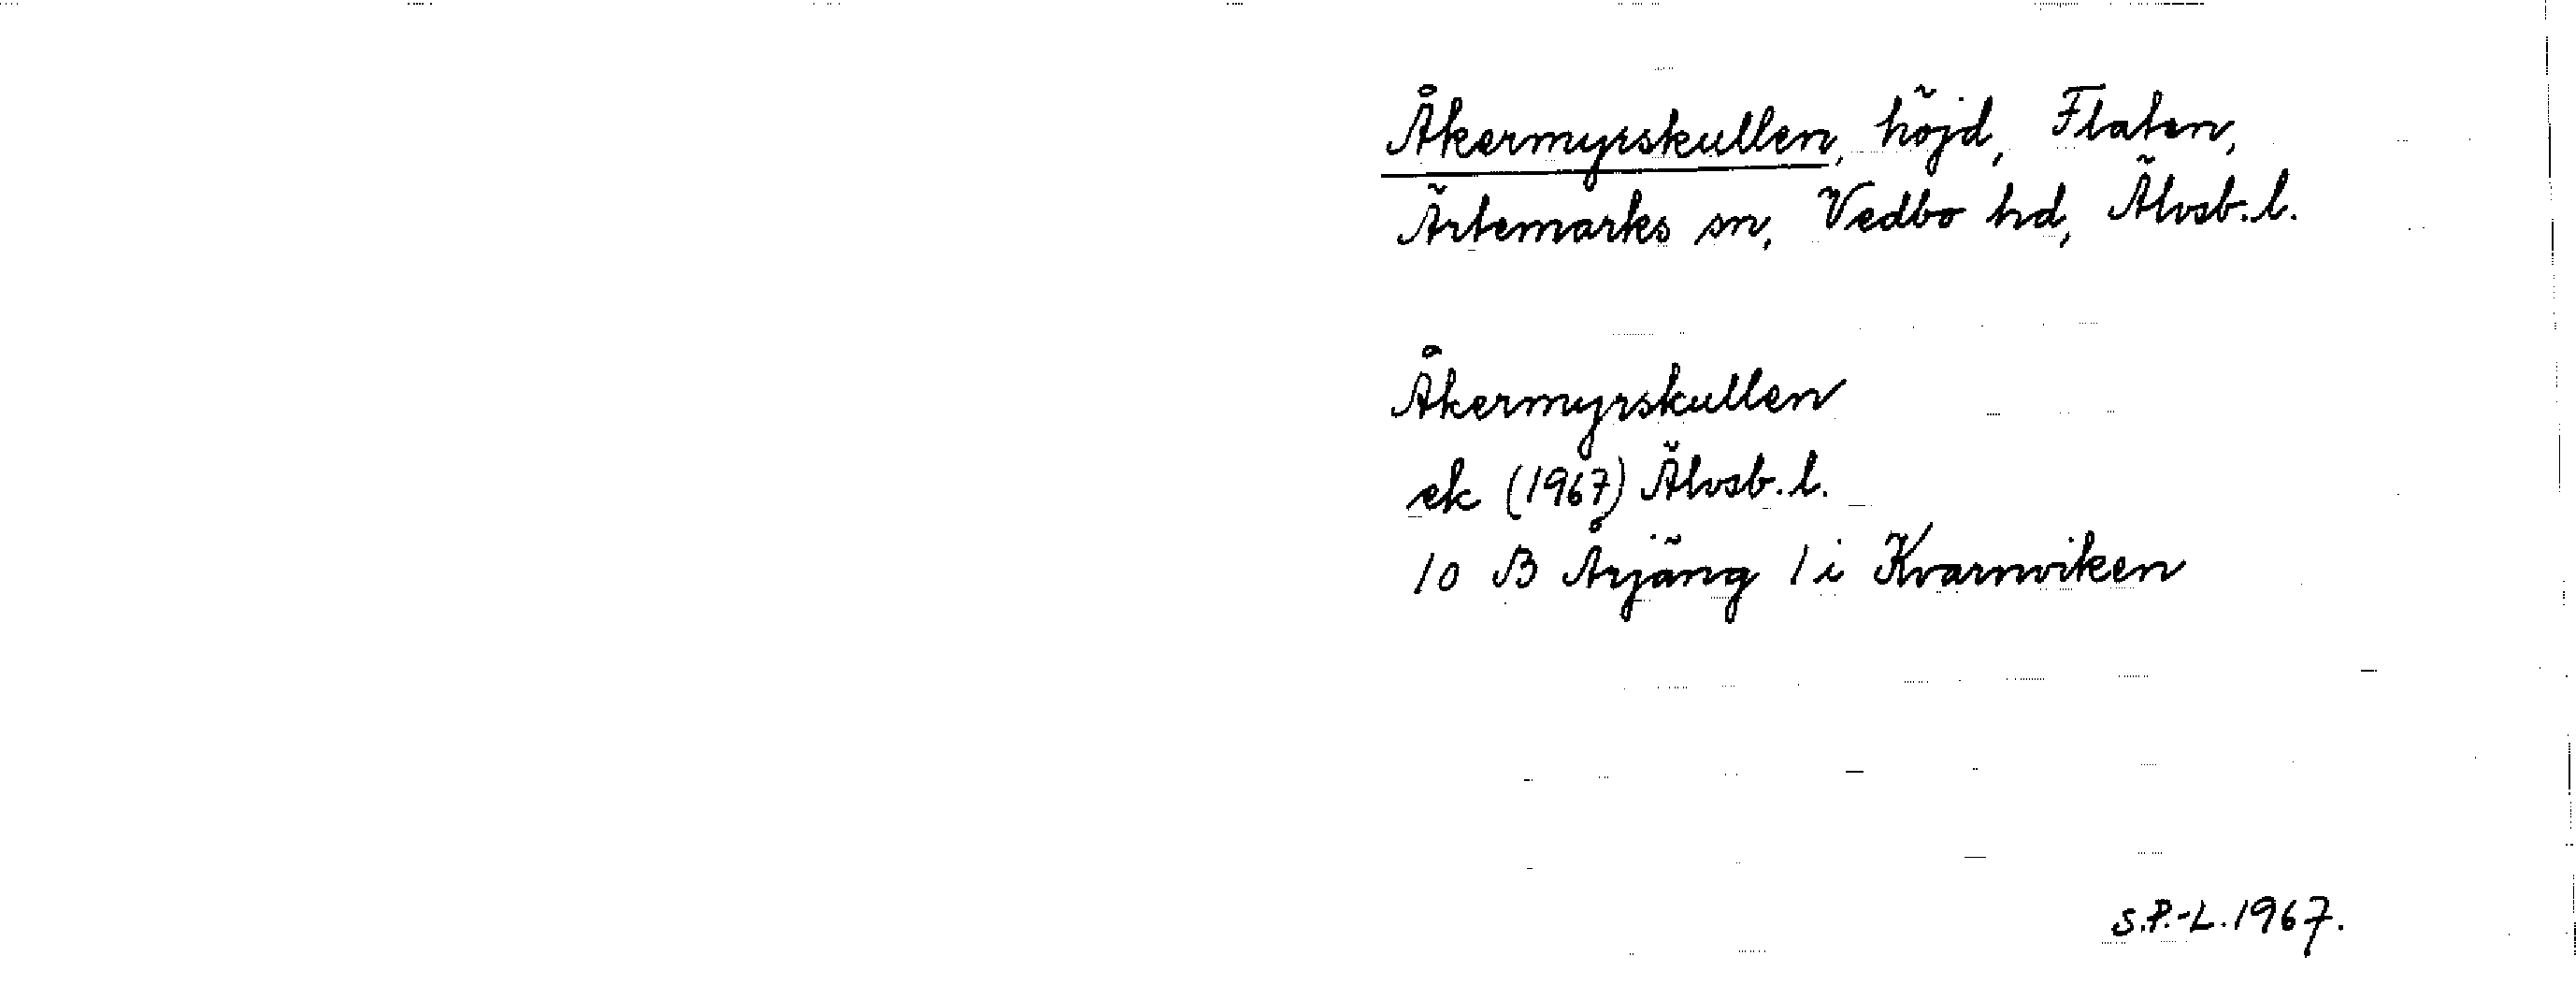 Åkermyrskullen, höjd, Flaten,
Ärtemarks sn, Vedbo hd, Älvsb. l.
Åkermyrskullen
ek (1967) Älvsb. l.
10 B Årjäng 1 i Kvarnviken
S.P.-L. 1967.